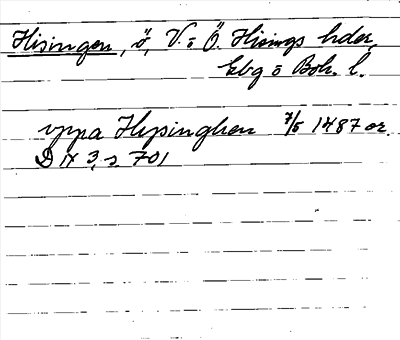 Hisingen, ö, V. o Ö. Hisings hder,
Gbg o Boh. l.
uppa Hysinghen 7/5 1487 or.
D IX 3, s. 701